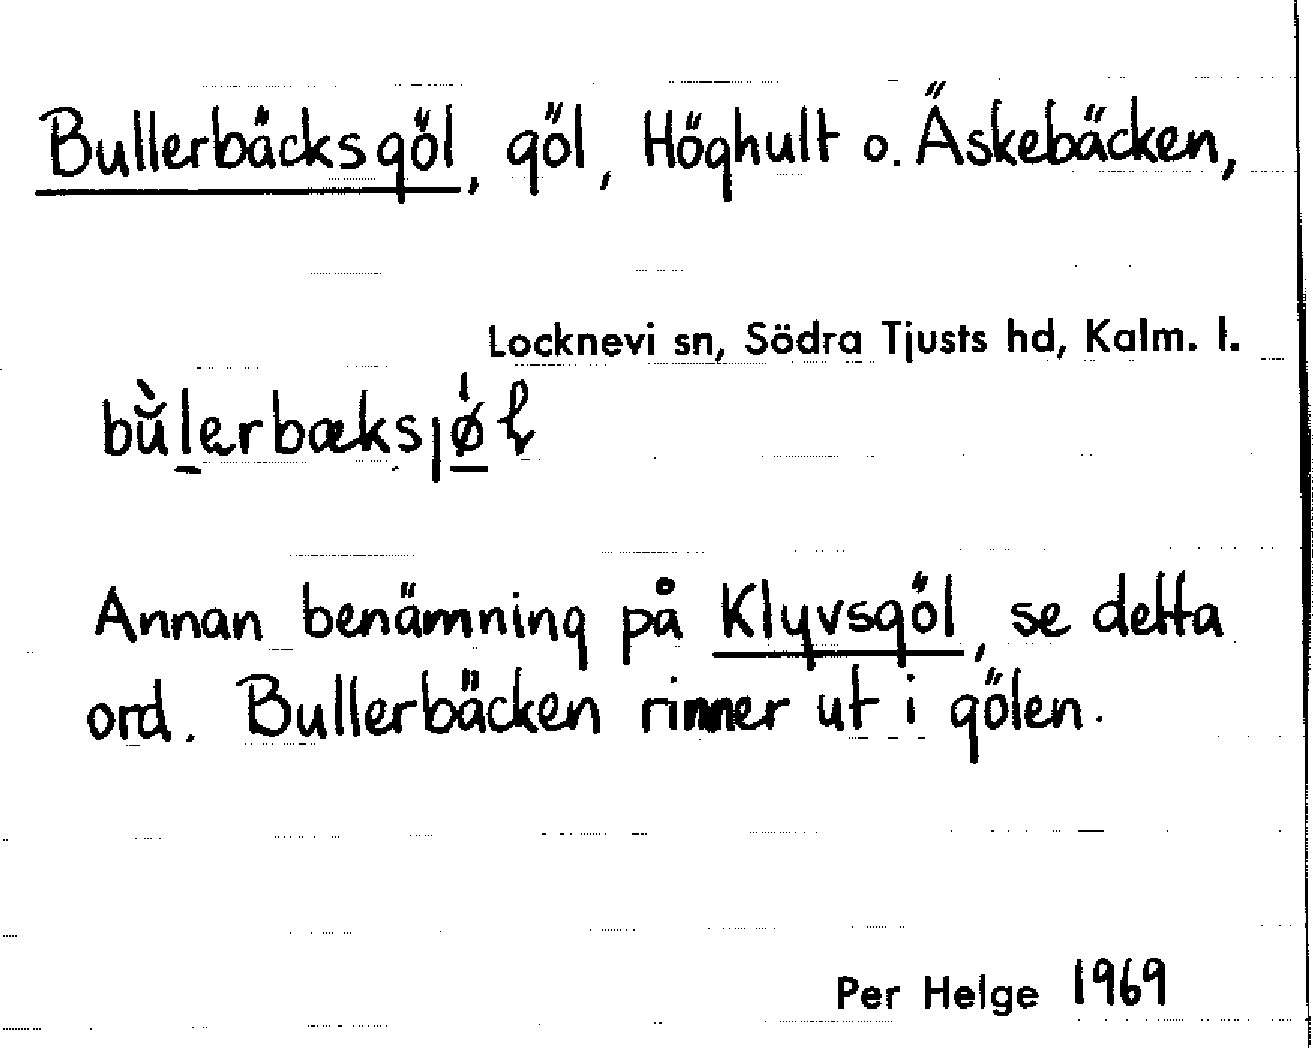 Bullerbäcksgöl, göl, Höghult o. Äskebäcken,
Locknevi sn, Södra Tjusts hd, Kalm. l.
bù̆lerbæksjø̀ł
Annan benämning på Klyvsgöl, se detta
ord. Bullerbäcken rinner ut i gölen.
Per Helge 1969